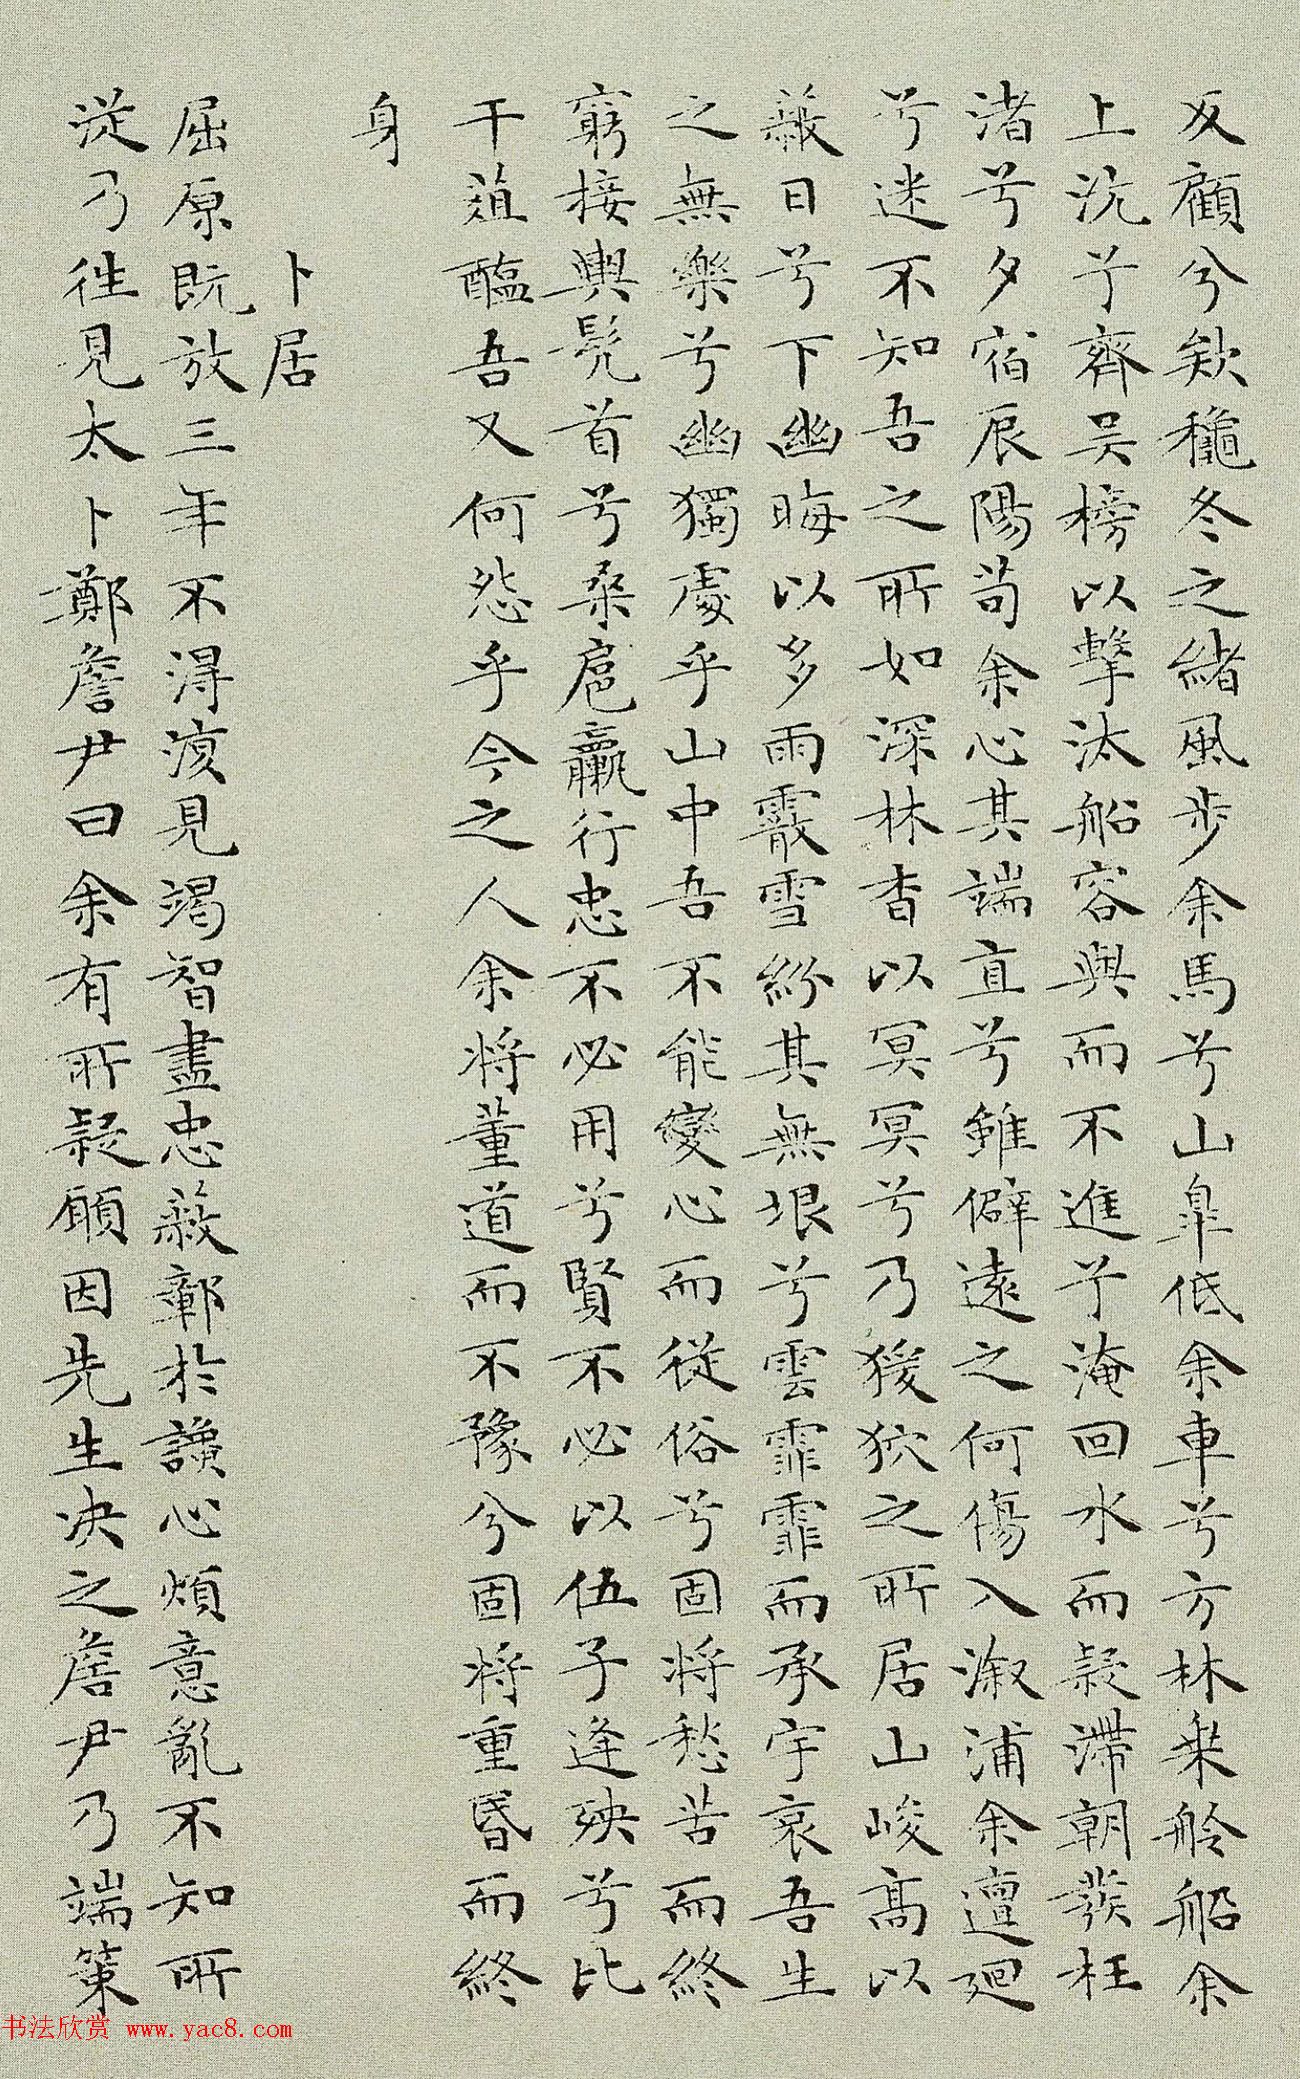 反顧兮欸秋冬之緒風步余馬兮山皐低余車兮方林乗舲船余
上沅兮齊吴榜以擊汰船容與而不進兮淹回水而疑滯朝發枉
渚兮夕宿辰陽苟余心其端直兮雖僻遠之何傷入溆浦余邅廻
兮迷不知吾之所如深林杳以冥冥兮乃猨狖之所居山峻髙以
蔽日兮下幽晦以多雨霰雪紛其無垠兮雲霏霏而承宇哀吾生
之無樂兮幽獨處乎山中吾不能變心而從俗兮固将愁苦而終
窮接輿髠首兮桑扈臝行忠不必用兮賢不必以伍子逢殃兮比
干葅醢吾又何怨乎今之人余将董道而不豫兮固将重昏而終
身
卜居
屈原既放三年不得復見竭智盡忠蔽鄣於讒心煩意亂不知所
從乃往見太卜鄭詹尹曰余有所疑願因先生决之詹尹乃端策
书法欣赏 www.yac8.com